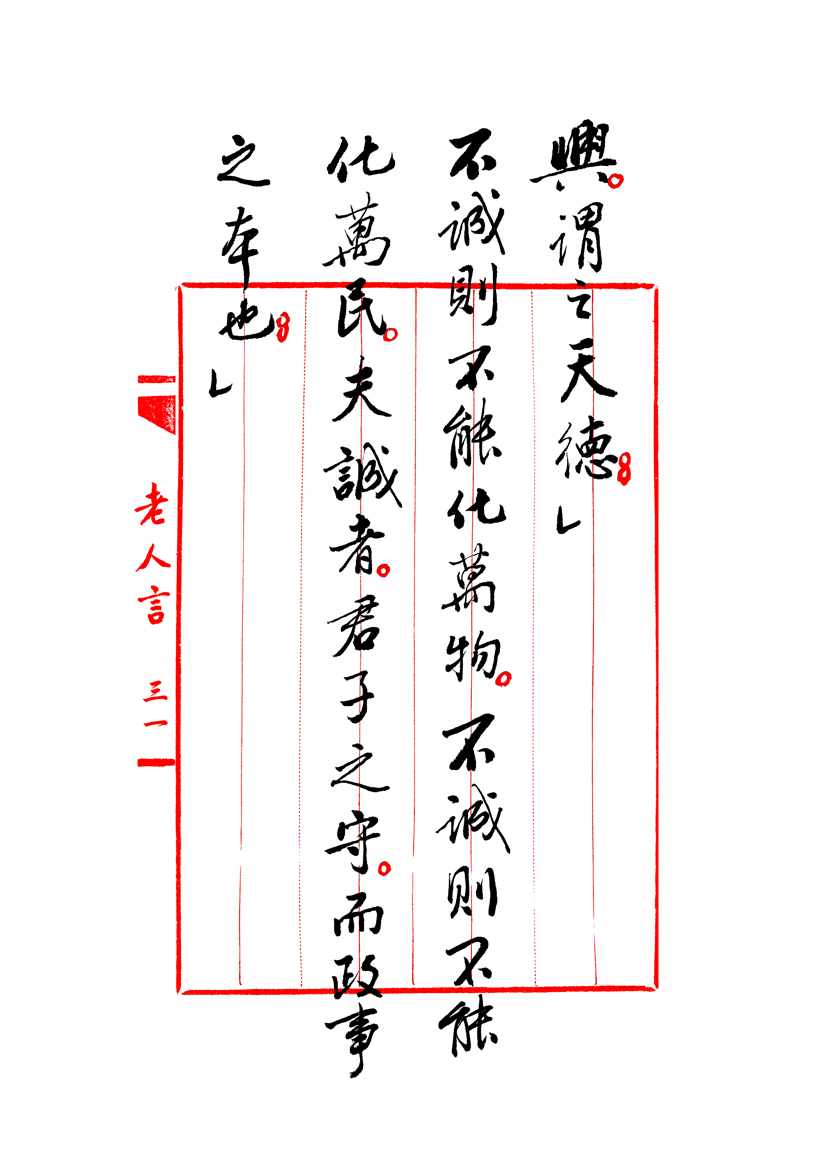 興。謂之天德。」
不誠則不能化萬物。不誠則不能
化萬民。夫誠者。君子之守。而政事
之本也。」
老人言 三一